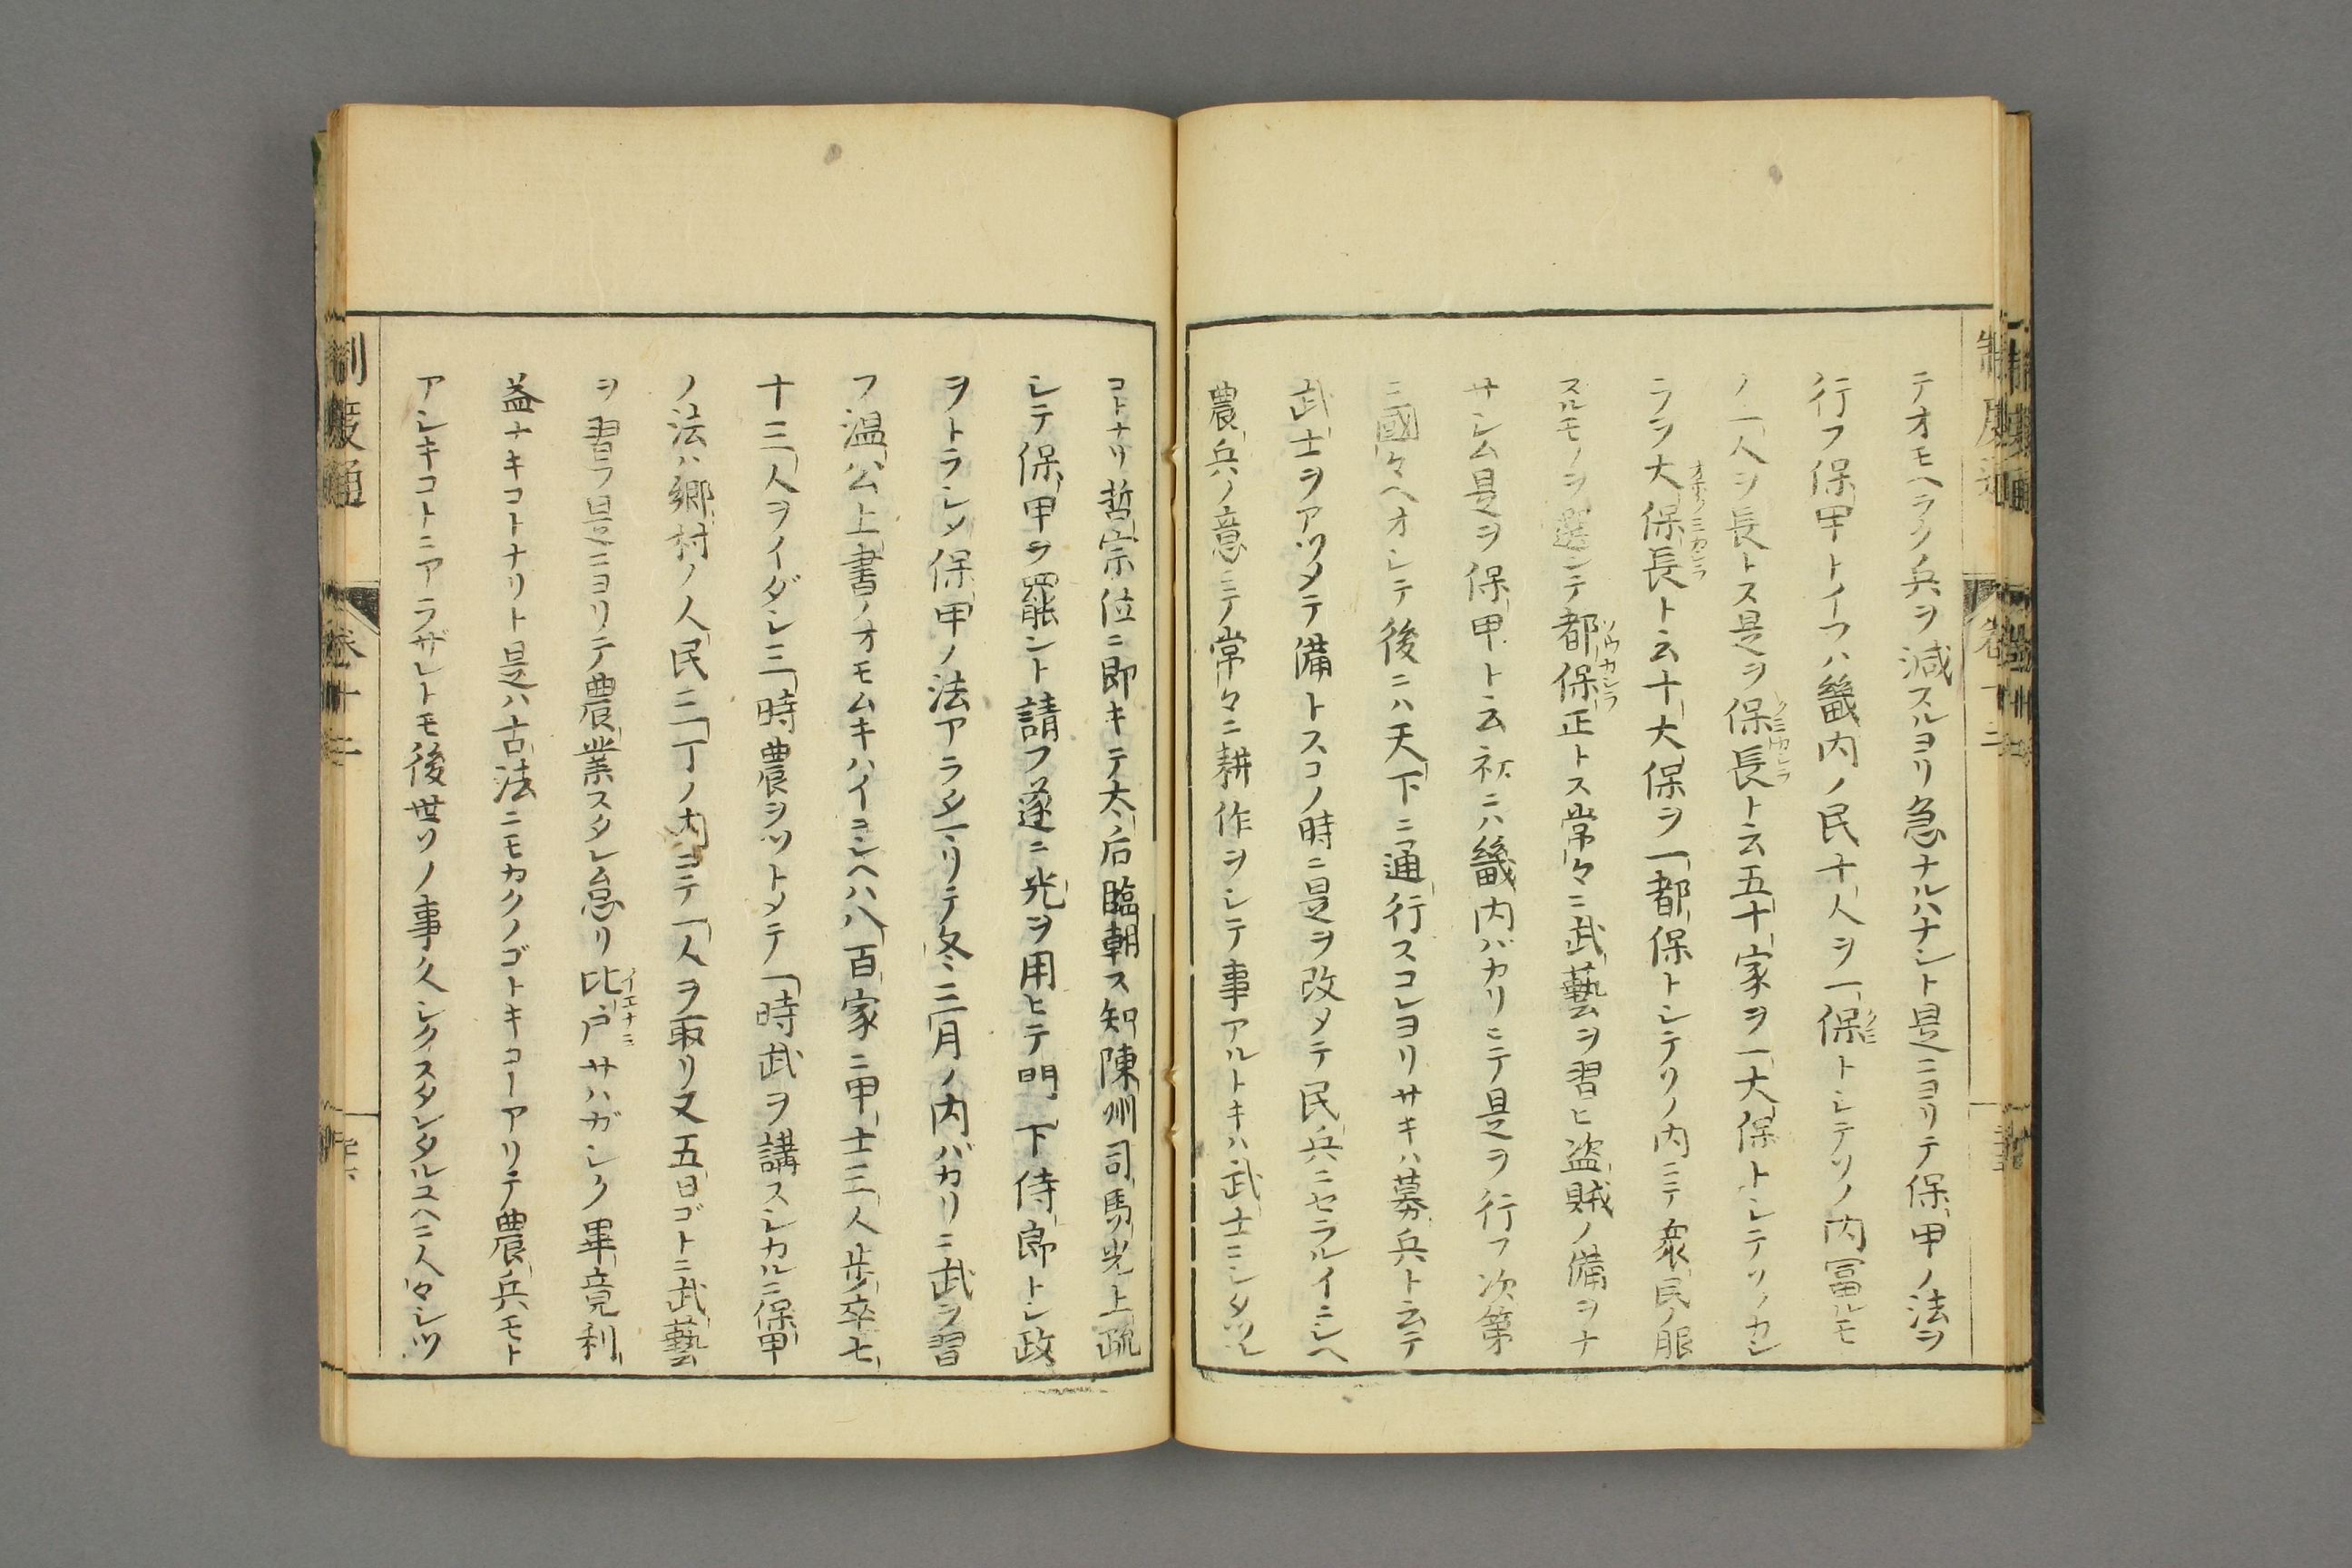 テオモヘラク兵ヲ減スルヨリ急ナルハナシト是ニヨリテ保甲ノ法ヲ
行フ保甲トイフハ畿内ノ民十人ヲ一保トシテソノ内冨ルモ
ノ一人ヲ長トス是ヲ保長ト云五十家ヲ一大保トシテソノカシ
ラヲ大保長ト云十大保ヲ一都保トシテソノ内ニテ衆民ノ服
スルモノヲ選ンテ都保正トス常々ニ武藝ヲ習ヒ盗賊ノ備ヲナ
サシム是ヲ保甲ト云初ニハ畿内バカリニテ是ヲ行フ次第
ニ國々ヘオシテ後ニハ天下ニ通行スコレヨリサキハ募兵ト云テ
武士ヲアツメテ備トスコノ時ニ是ヲ改メテ民兵ニセラルイニシヘ
農兵ノ意ニテ常々ニ耕作ヲシテ事アルトキハ武士ニシタツル
コトナリ哲宗位ニ即キテ太后臨朝ス知陳州司馬光上疏
シテ保甲ヲ罷ント請フ遂ニ光ヲ用ヒテ門下侍郎トシ政
ヲトラシメ保甲ノ法アラタマリテ冬三月ノ内バカリニ武ヲ習
フ温公上書ノオモムキハイニシヘハ八百家ニ甲士三人歩卒七
十二人ヲイダシ三時農ヲツトメテ一時武ヲ講スシカルニ保甲
ノ法ハ郷村ノ人民二丁ノ内ニテ一人ヲ取リ又五日ゴトニ武藝
ヲ習フ是ニヨリテ農業スタレ怠リ比戸サハガシク畢竟利
益ナキコトナリト是ハ古法ニモカクノゴトキコトアリテ農兵モト
アシキコトニアラザレトモ後世ソノ事久シクスタレタルユヘニ人々シツ
制度通
巻十二